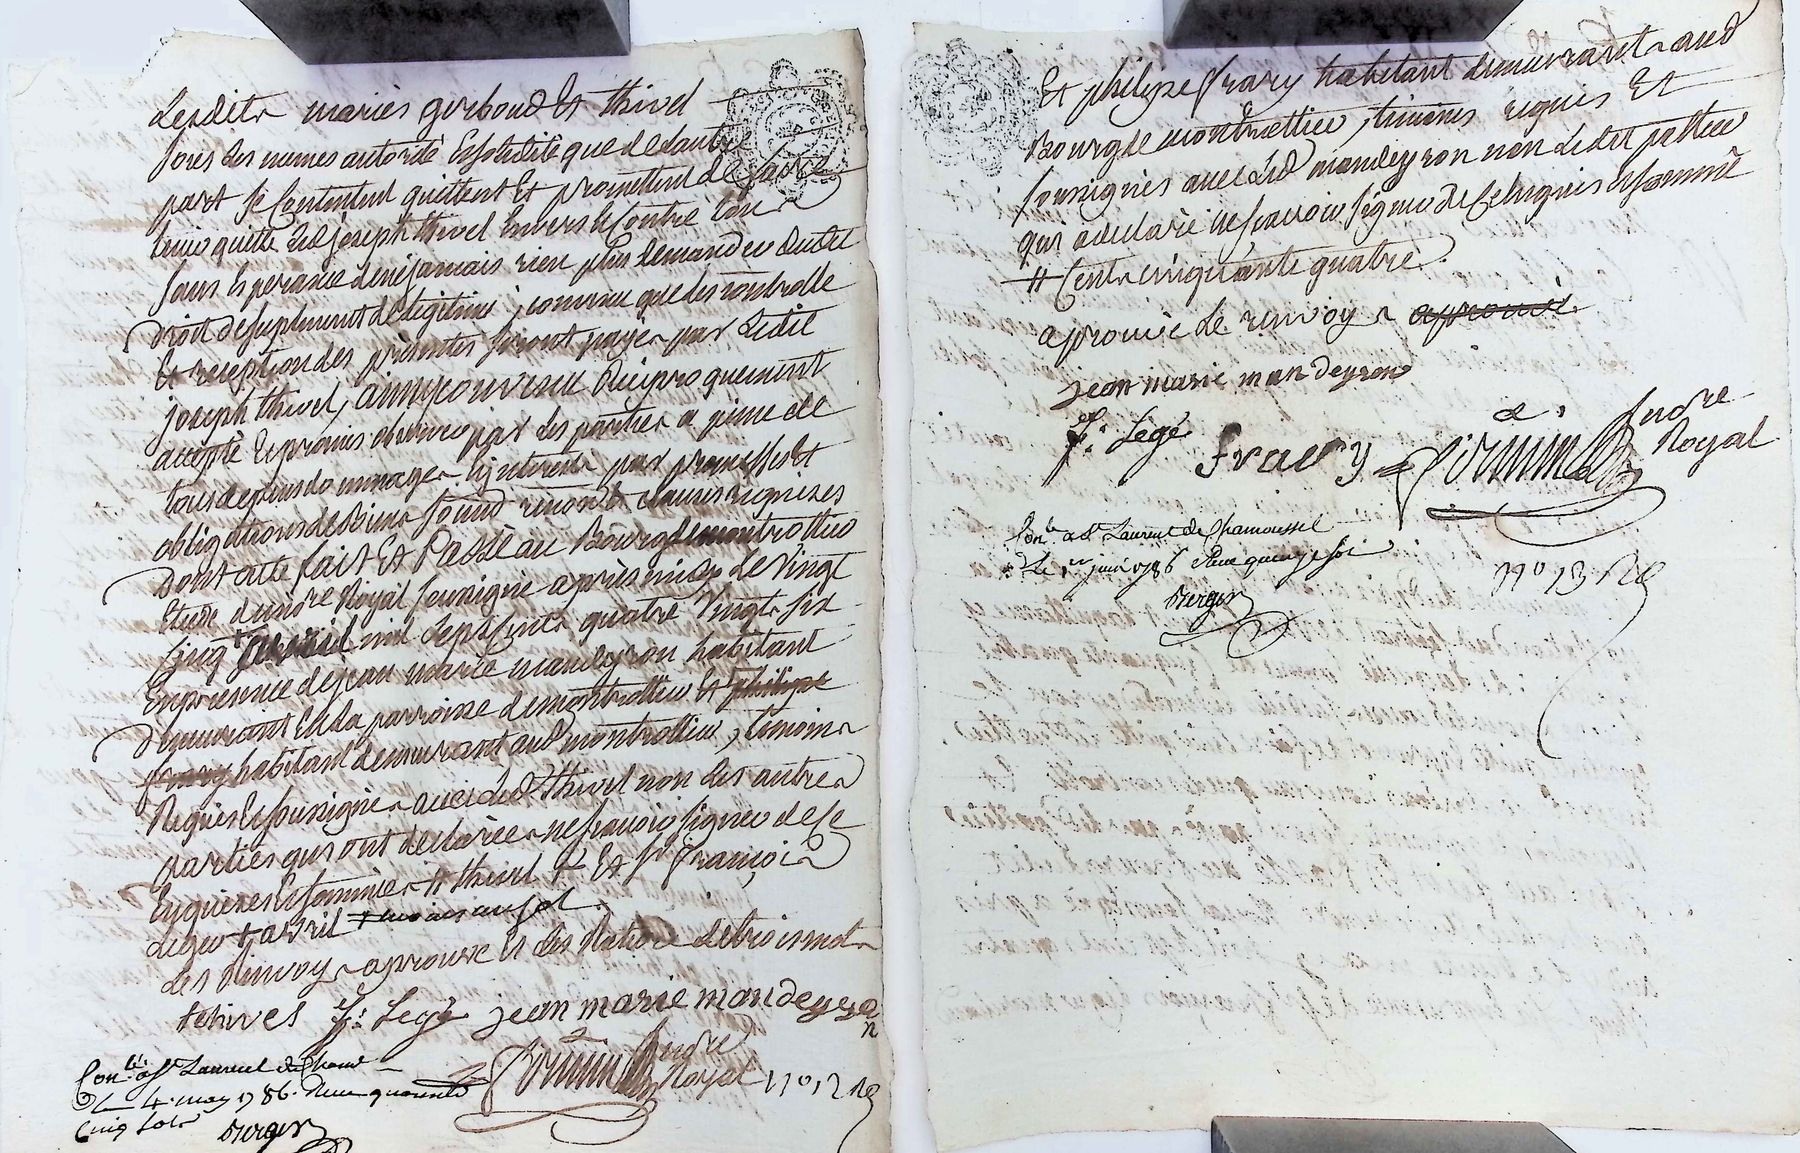 Lesdits mariés gorboud Et thivel
sous les mêmes autorité Esolidité que de l'autre
part se Contentent quittent Et promettent de faire
tenir quitte led joseph thivel Envers Et Contre tous
sans Esperance de né jamais rien plus demander dudit
droit de suplement de legitime, convenu que les controlle
Et reception des presentes seront payes par Ledit
joseph thivel, ainsy convenu reciproquement
accepté Et promis observer par les parties a peine de
tous depens domages Linterests par promesses Et
obligations de Biens soumd renonce clauses requises
Dont acte fait Et Passé au Bourg de montrottier
Etude du nore Royal soussigné après midy le Vingt
Cinq mil sept Cents quatre Vingt six
En presence de jean marie mandeyron habitant
demeurant En la parroisse de montrottier Et philipe
frary habitant demeurant aud montrottier, temoins
Requis Et soussignés avec led thivel non les autres
parties qui ont declarée ne sçavoir signer de Ce
Enquises Et sommées # thivel # Et sr François
Leger + avril
Les Renvoy aprouvé Et les Rature de trois mots
tehivel fs: Legé jean marie mandeyron
nore Royal n° 12 Re
Conlé a st Laurent de Cham
Le 4. may 1786. Reçu quarente
Cinq sols Berger
Et philipe frary habitant demeurant aud
Bourg de montrottier, temoins requis Et
soussignés avec Led mandeyron non Ledit
qui a declaré ne sçavoir signer de Ce Enquis Et sommé
# Cents cinquante quatre.
aprouvé Le renvoy aprouvé
jean marie mandeyron
fs: Legé fraery nore Royal
Conlé a st Laurent de Chamousset
Le 1er juin 1786 Reçu quinze sols
Berger
n° 13 Re